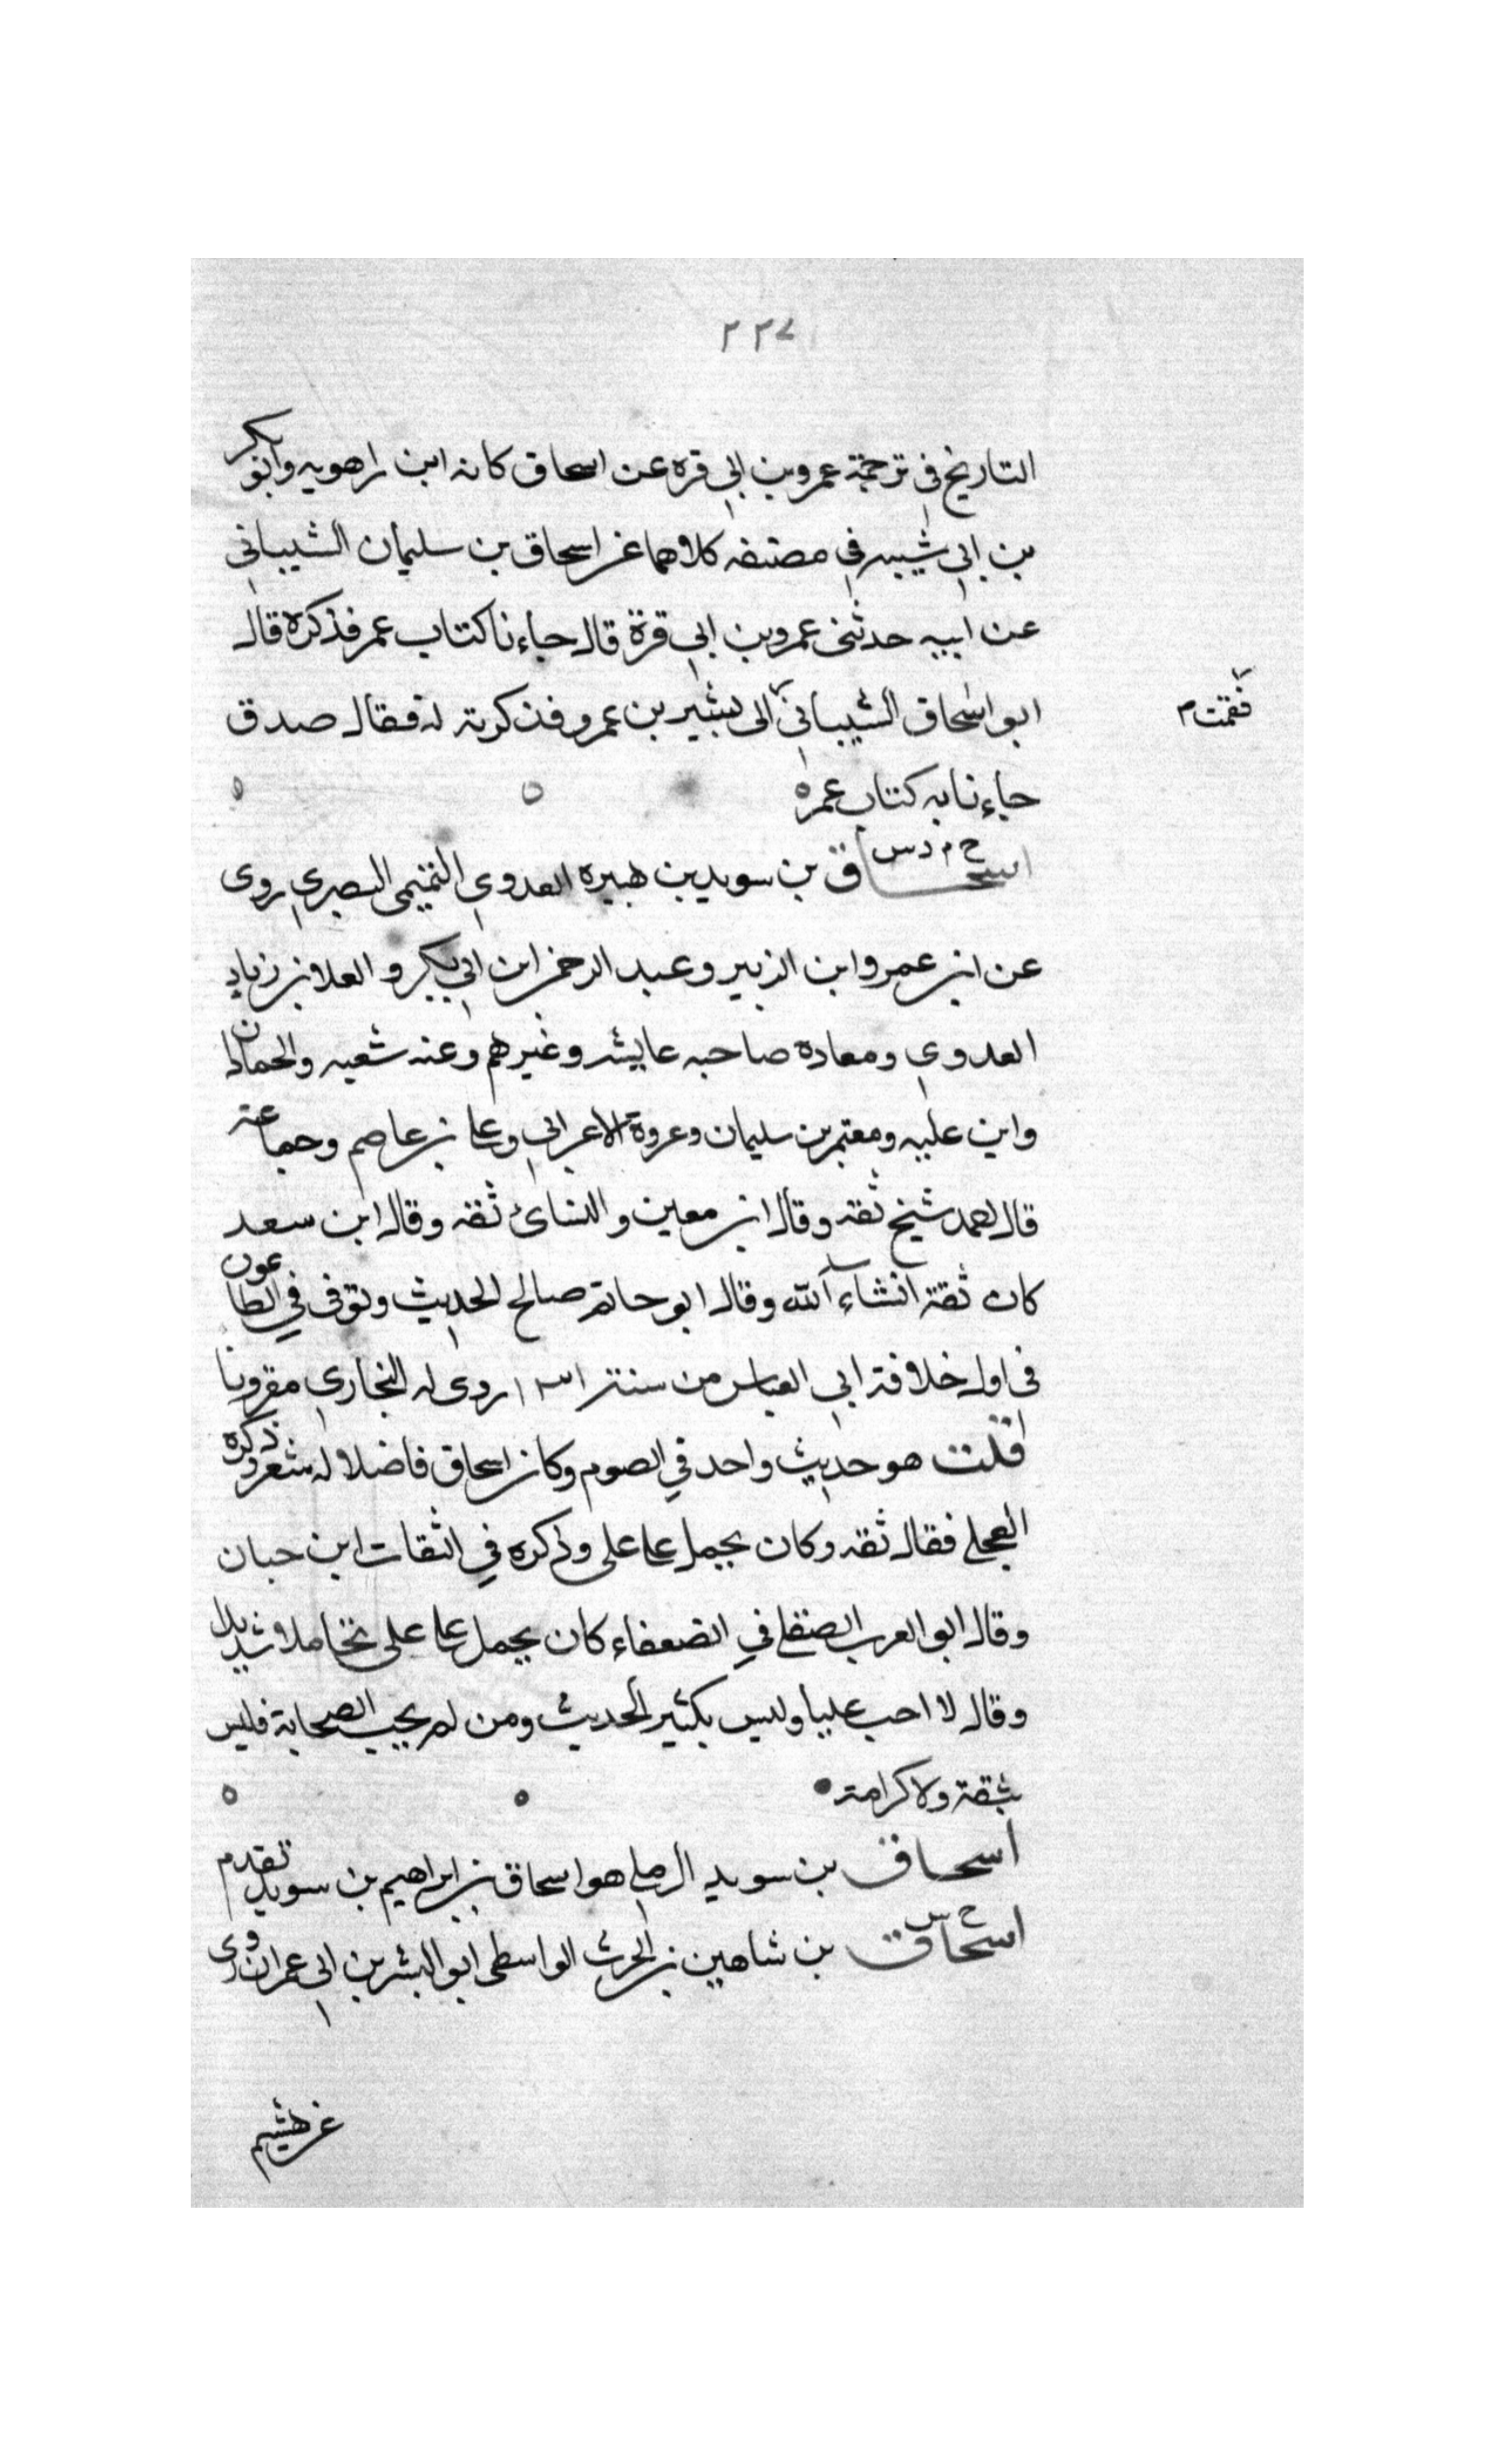 ٢٢٧
التاريخ في ترجمة عمرو بن ابي قرة عن اسحاق كانه ابن راهويه وابو بكر
بن ابي شيبه في مصنفه كلاهما عن اسحاق بن سليمان الشيباني
عن ابيه حدثني عمرو بن ابي قرة قال جاءنا كتاب عمر فذكره قال
ابو اسحاق الشيباني الى بشير بن عمرو فذكرته له فقال صدق
فقمت م
جاءنا به كتاب عمر ه
خ م د س
اسحاق بن سويد بن هبيره العدوي التميمي البصري روى
عن ابن عمر وابن الزبير وعبد الرحمن ابن ابي بكر والعلا بن زياد
العدوي ومعاده صاحبه عايشه وغيرهم وعنه شعبه والحمادان
وابن عليه ومعتمر بن سليمان وعروة الاعرابي وعلى بن عاصم وجماعة
قال احمد شيخ ثقه وقال ابن معين والنسائ ثقه وقال ابن سعد
كان ثقة انشاء الله وقال ابو حاتم صالح الحديث وتوفى في الطاعون
في اول خلافة ابي العباس من سنة ١٣١ روى له البخاري مقرونا
قلت هو حديث واحد في الصوم وكان اسحاق فاضلا له شعر وذكره
العجلي فقال ثقه وكان يحمل على على وذكره في الثقات ابن حبان
وقال ابو العرب الصقلي في الضعفاء كان يحمل على على تحاملا شديدا
وقال لا احب عليا وليس بكثير الحديث ومن لم يحب الصحابة فليس
بثقة ولا كرامة
اسحاق بن سويد الرملي هو اسحاق بن ابراهيم بن سويد تقدم
خ س
اسحاق بن شاهين بن الحرث الواسطى ابو البشر بن ابي عمران روى
عن هشيم